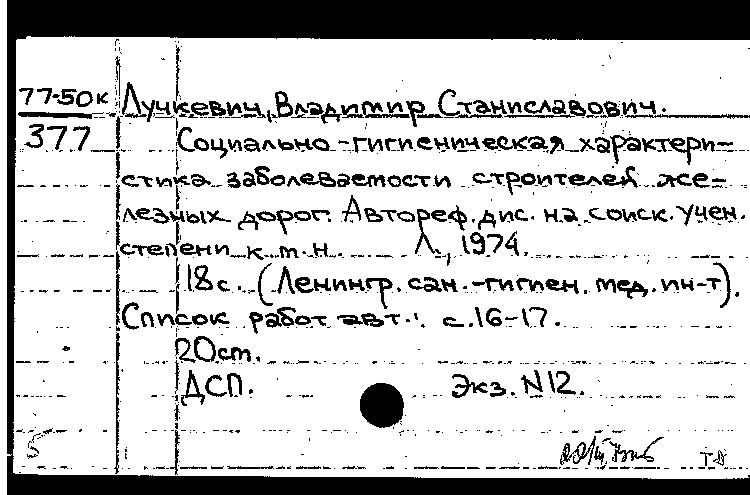 77-50к Лучкевич, Владимир Станиславович.
377 Социально-гигиеническая характери-
стика заболеваемости строителей же-
лезных дорог. Автореф. дис. на соиск. учен.
степени к.т.н. Л., 1974.
18с. (Ленингр. сан.-гигиен. мед. ин-т).
Список работ авт.: с.16-17.
20см.
ДСП. Экз. N12.
5